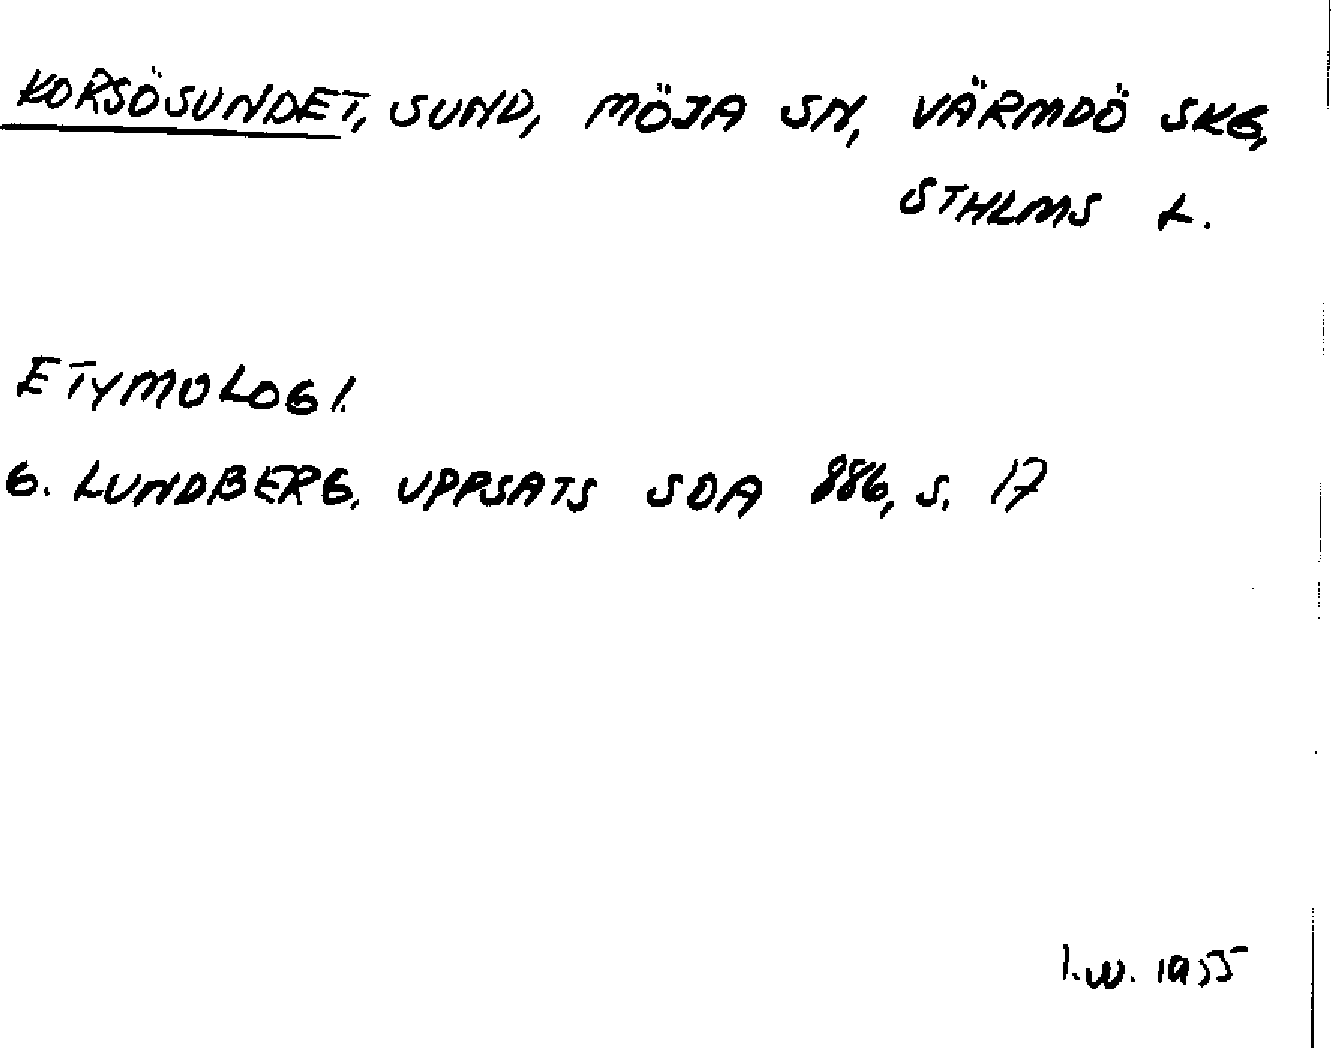 KORSÖSUNDET, SUND, MÖJA SN, VÄRMDÖ SKG,
STHLMS L.
ETYMOLOGI.
G. LUNDBERG. UPPSATS SOA 886, S. 17
I.W. 1955